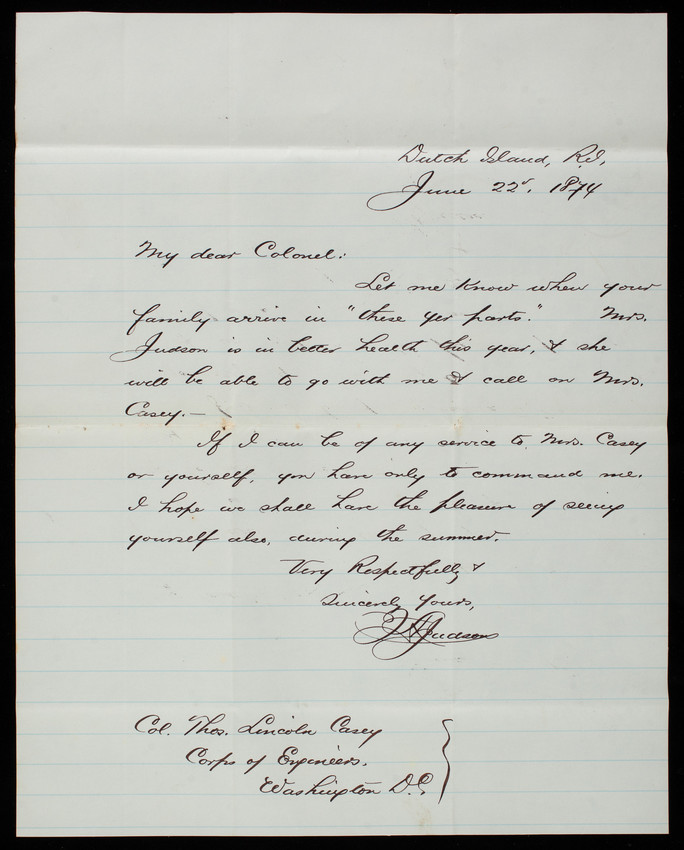 Dutch Island, R.I,
June 22d, 1874
My dear Colonel:
Let me know when your
family arrive in "these yer parts." Mrs.
Judson is in better health this year, & she
will be able to go with me & call on Mrs.
Casey.—
If I can be of any service to Mrs. Casey
or yourself, you have only to command me.
I hope we shall have the pleasure of seeing
yourself also, during the summer.
Very Respectfully &
Sincerely Yours,
Judson
Col. Thos. Lincoln Casey
Corps of Engineers.
Washington D.C.